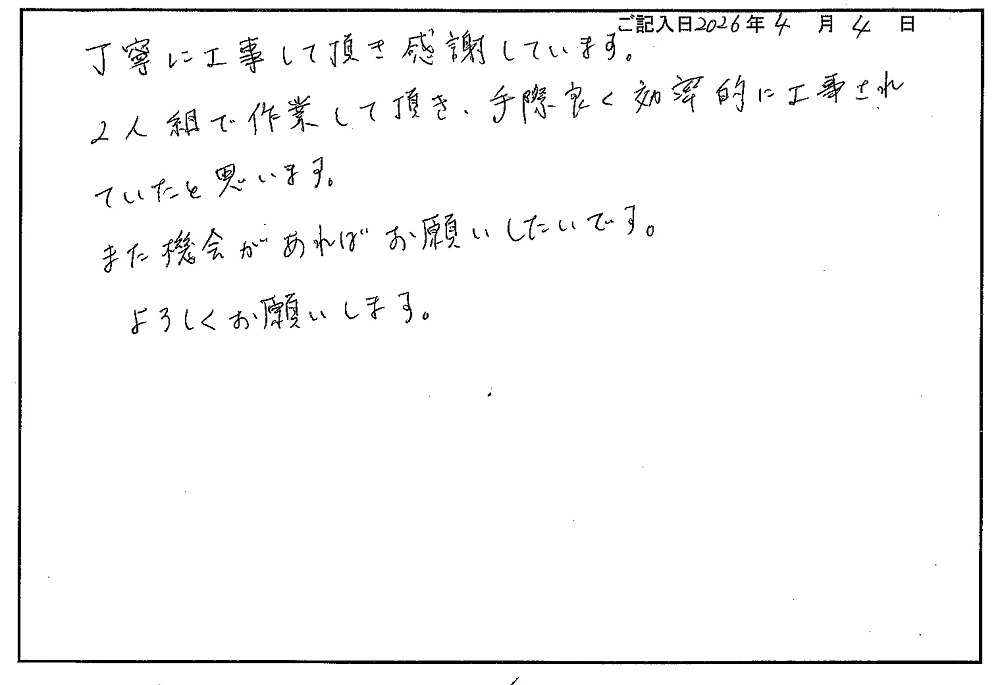 ご記入日2026年4月4日
丁寧に工事して頂き感謝しています。
2人組で作業して頂き、手際良く効率的に工事され
ていたと思います。
また機会があればお願いしたいです。
よろしくお願いします。